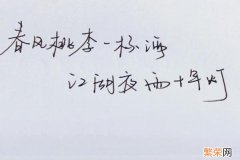 春风桃李一杯酒
江湖夜雨十年灯
繁荣网